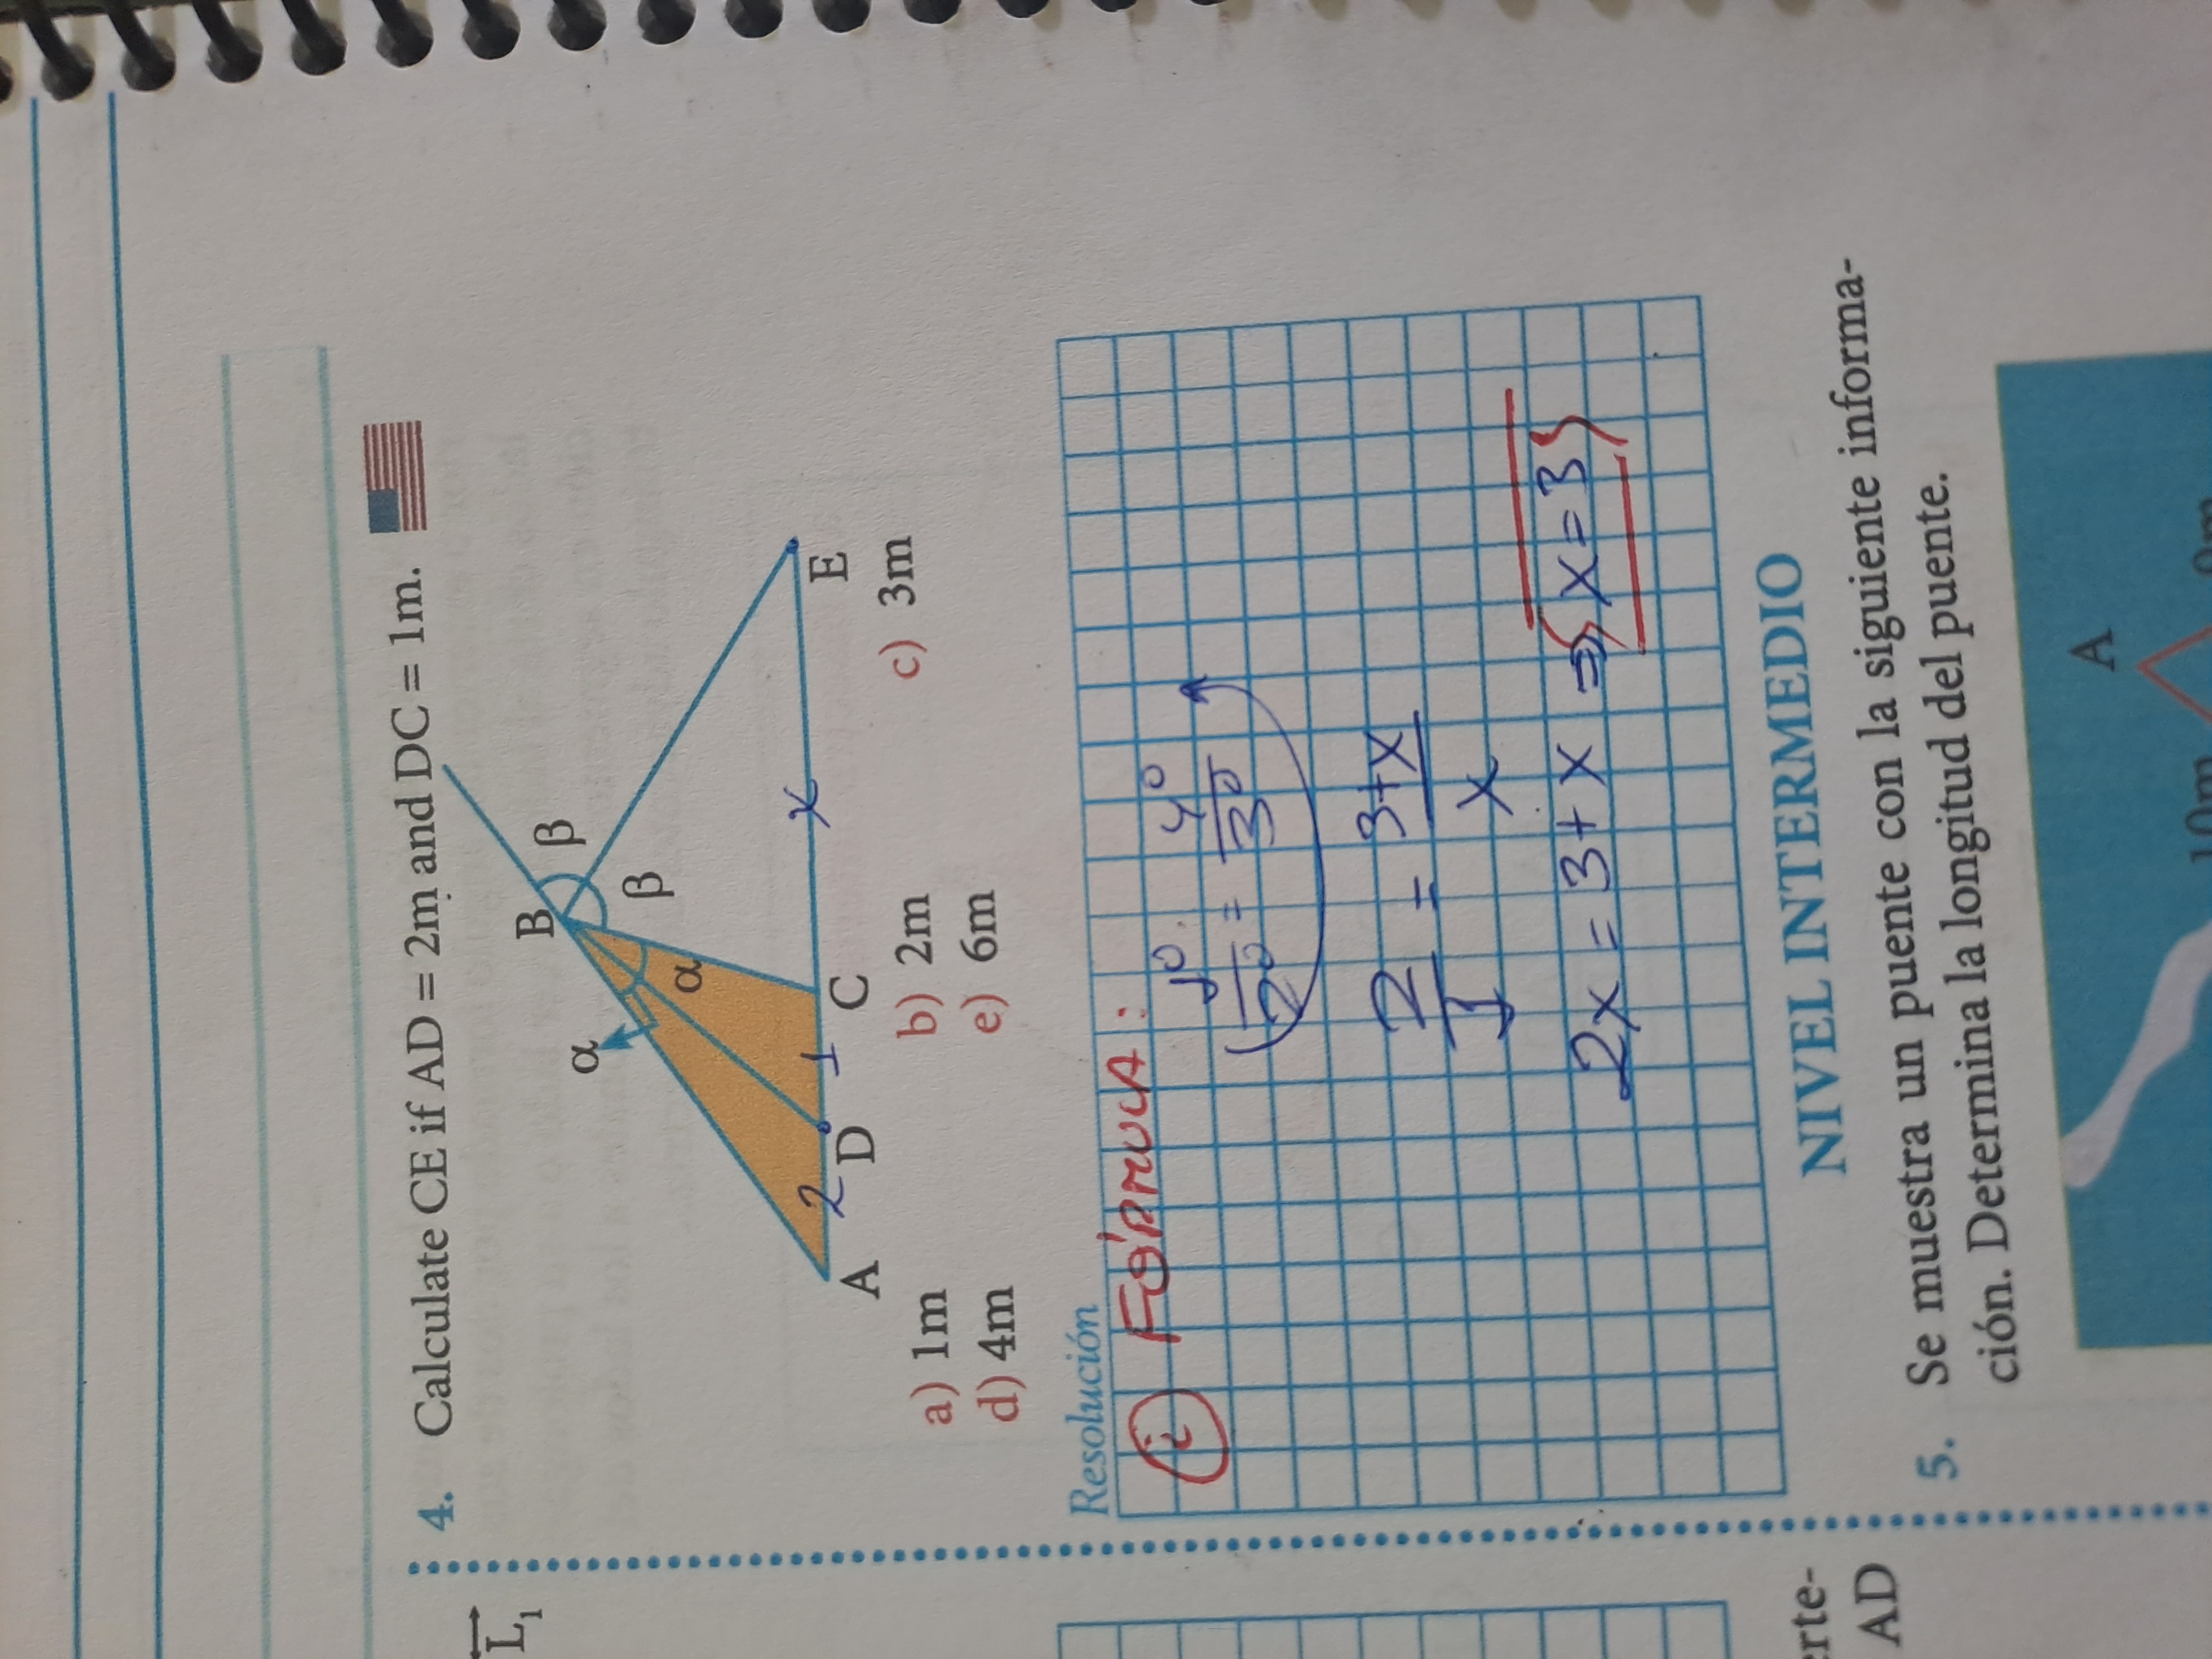 L₁
4. Calculate CE if AD = 2m and DC = 1m.
B
β
α
β
α
2
1
x
A
D
C
E
a) 1m
b) 2m
c) 3m
d) 4m
e) 6m
Resolución
i FÓRMULA:
1º/2º = 4º/3º
2/1 = 3+x/x
2x = 3+x ⇒ x=3
NIVEL INTERMEDIO
erte-
AD
5. Se muestra un puente con la siguiente informa-
ción. Determina la longitud del puente.
A
10m